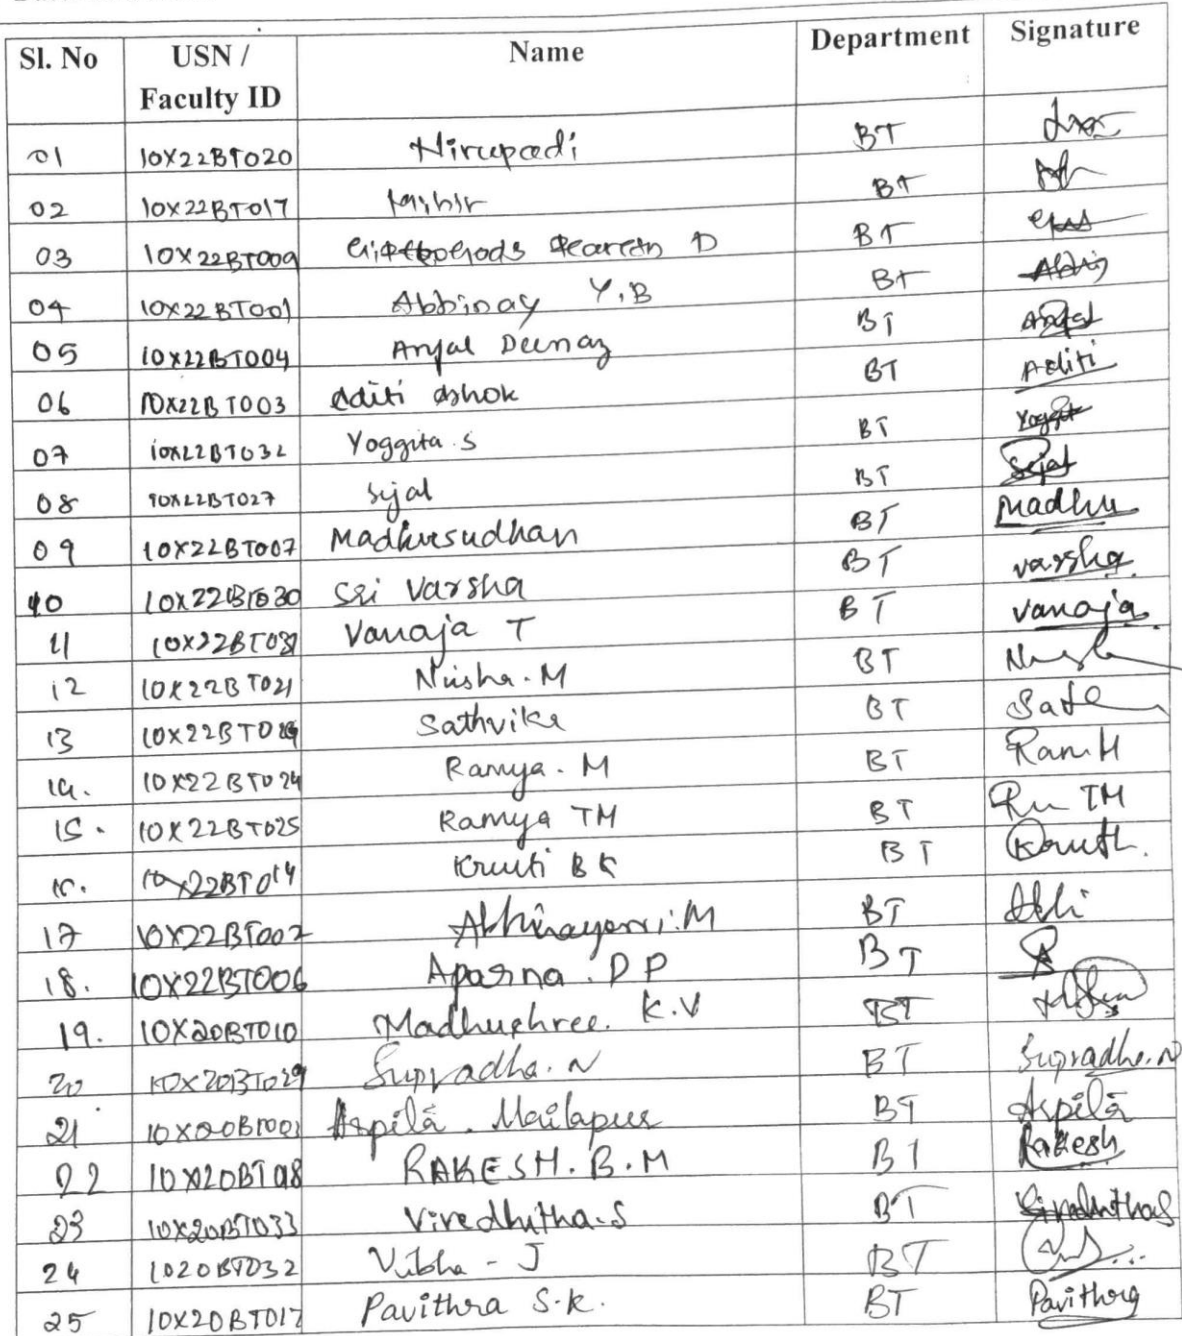 Sl. No USN / Faculty ID Name Department Signature
01 10X22BT020 Nirupadi BT
02 10X22BT017 Mihir BT
03 10X22BT009 D BT
04 10X22BT001 Abhinay Y.B BT Abhi
05 10X22BT004 Anjal Deenaz BT Anjal
06 10X22BT003 Aditi Ashok BT Aditi
07 10X22BT032 Yoggita.S BT Yoggita
08 10X22BT027 Sejal BT Sejal
09 10X22BT007 Madhusudhan BT Madhu
10 10X22BT030 Sri Varsha BT varsha
11 10X22BT031 Vanaja T BT vanaja
12 10X22BT021 Nisha.M BT
13 Sathvika BT
14. 10X22BT024 Ramya.M BT
15. 10X22BT025 Ramya TM BT TM
16. 10X22BT014 Kruti BK BT Kruth.
17 10X22BT002 M BT Abhi
18. 10X22BT006 Aparna.DP BT
19. 10X20BT010 Madhushree. K.V BT
20 10X20BT029 Supradha.N BT Supradha.N
21 10X20BT003 Arpita. Mailapur BT Arpita
22 RAKESH.B.M BT Rakesh
23 10X20BT033 Viredhitha.S BT
24 1020BTD32 Vibha - J BT
25 10X20BT017 Pavithra S.K. BT Pavithra